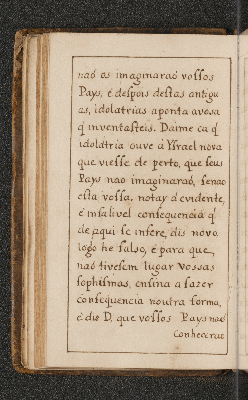 naõ as imaginaraõ vossos
Pays, e despois destas antigu
as, idolatrias aponta avosa
q̃ inventasteis. Daime ca q̃
idolatria ouve ă Ysrael nova
que viesse de perto, que seus
Pays nao imaginaraõ, senao
esta vossa, notay d evidente,
e infalivel consequencia q̃
de aqui se infere, dis novo,
logo he falso, e para que
naõ tivesem lugar vossas
sophismas, ensina a fazer
consequencia noutra forma,
e die D. que vossos Pays naõ
Conhecerao